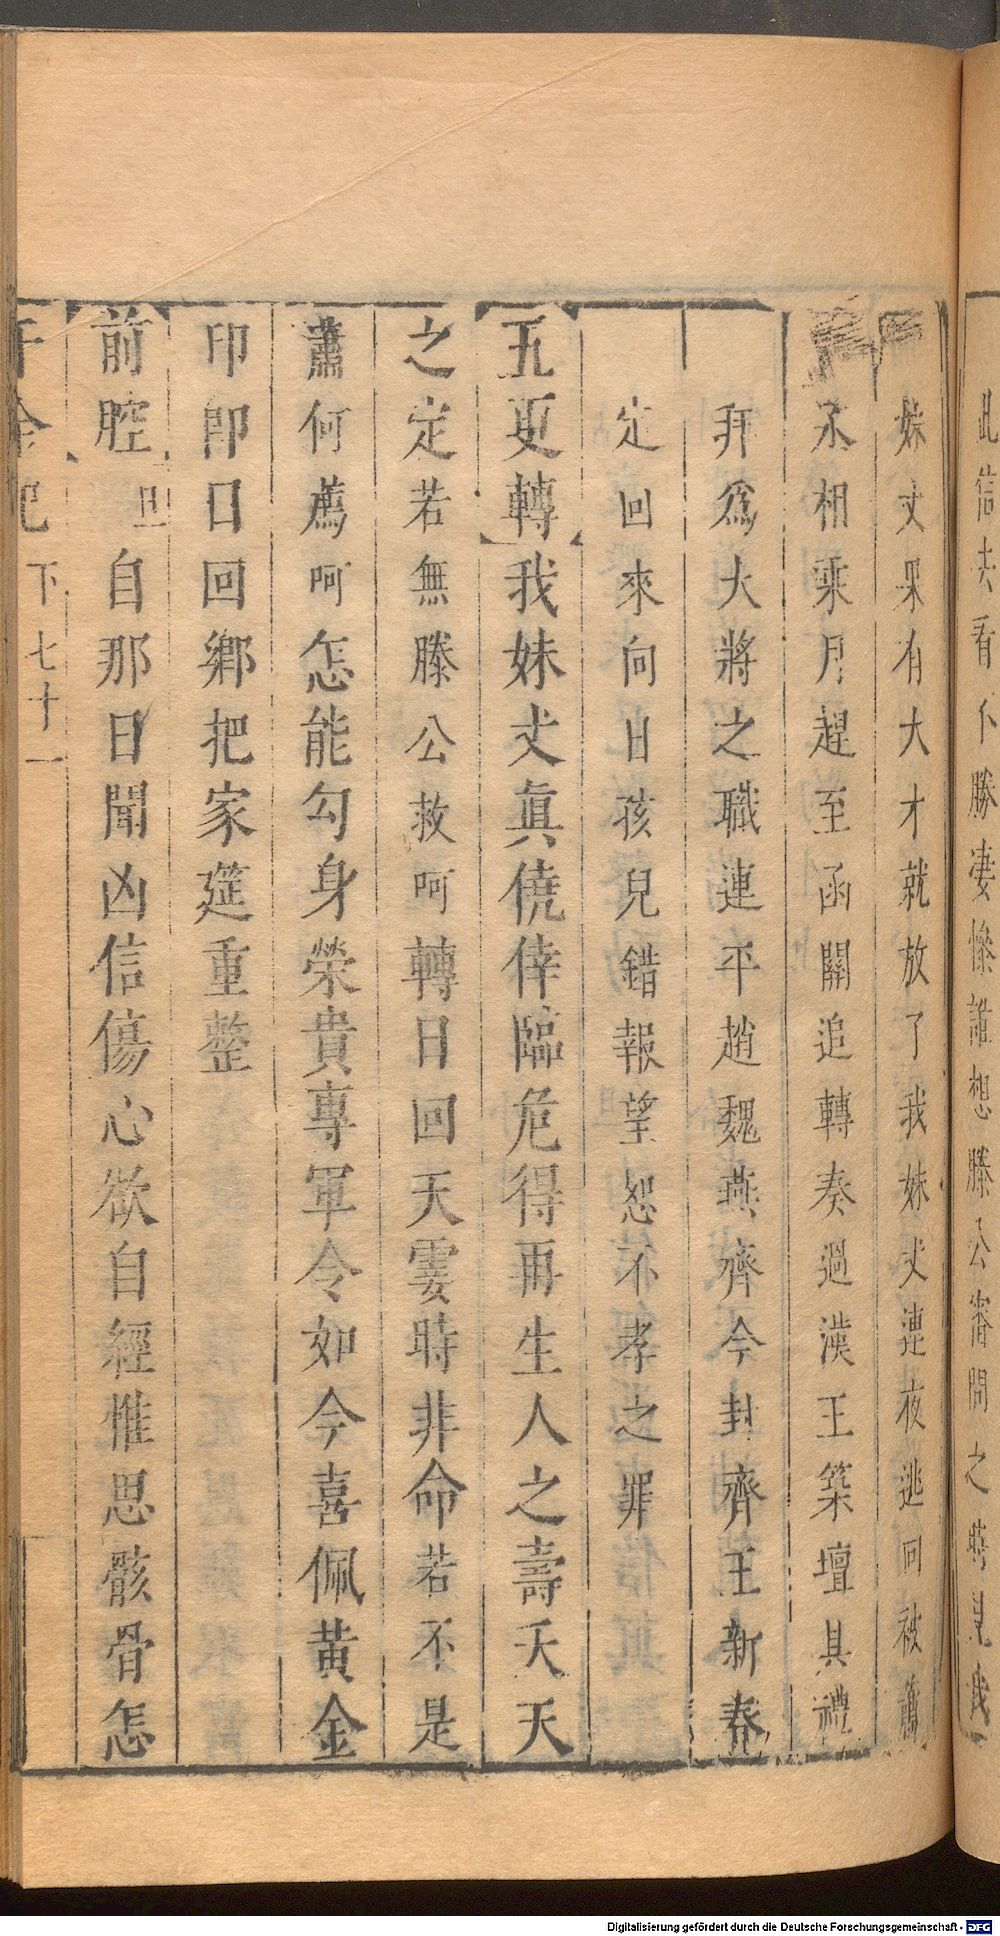 此信去看不勝凄慘誰想滕公審問之時見我
妹丈果有大才就放了我妹丈連夜逃回被蕭
丞相乘月趕至函關追轉奏過漢王築壇具禮
拜爲大將之職連平趙魏燕齊今封齊王新春
定回來向日孩兒錯報望恕不孝之罪
五更轉我妹丈眞僥倖臨危得再生人之壽夭天
之定若無滕公救呵轉日回天霎時非命若不是
蕭何薦呵怎能勾身榮貴專軍令如今喜佩黃金
印即日回鄉把家筵重整
前腔旦自那日聞凶信傷心欲自經惟思骸骨怎
千金記 下 七十一
Digitalisierung gefördert durch die Deutsche Forschungsgemeinschaft - DFG